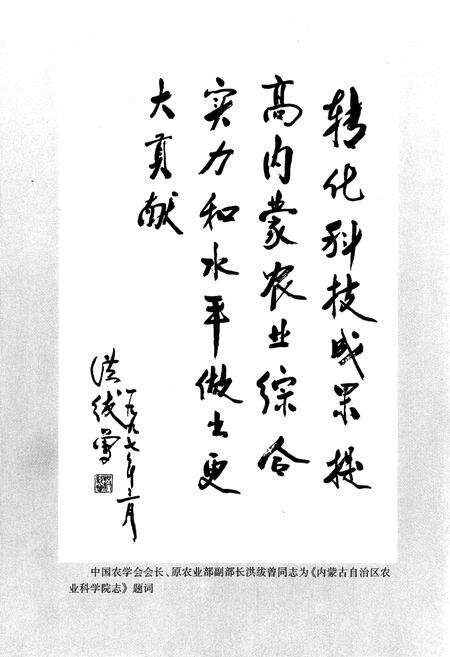 转化科技成果提
高内蒙农业综合
实力和水平做出更
大贡献
洪绂曾
一九九七年三月
中国农学会会长、原农业部副部长洪绂曾同志为《内蒙古自治区农
业科学院志》题词